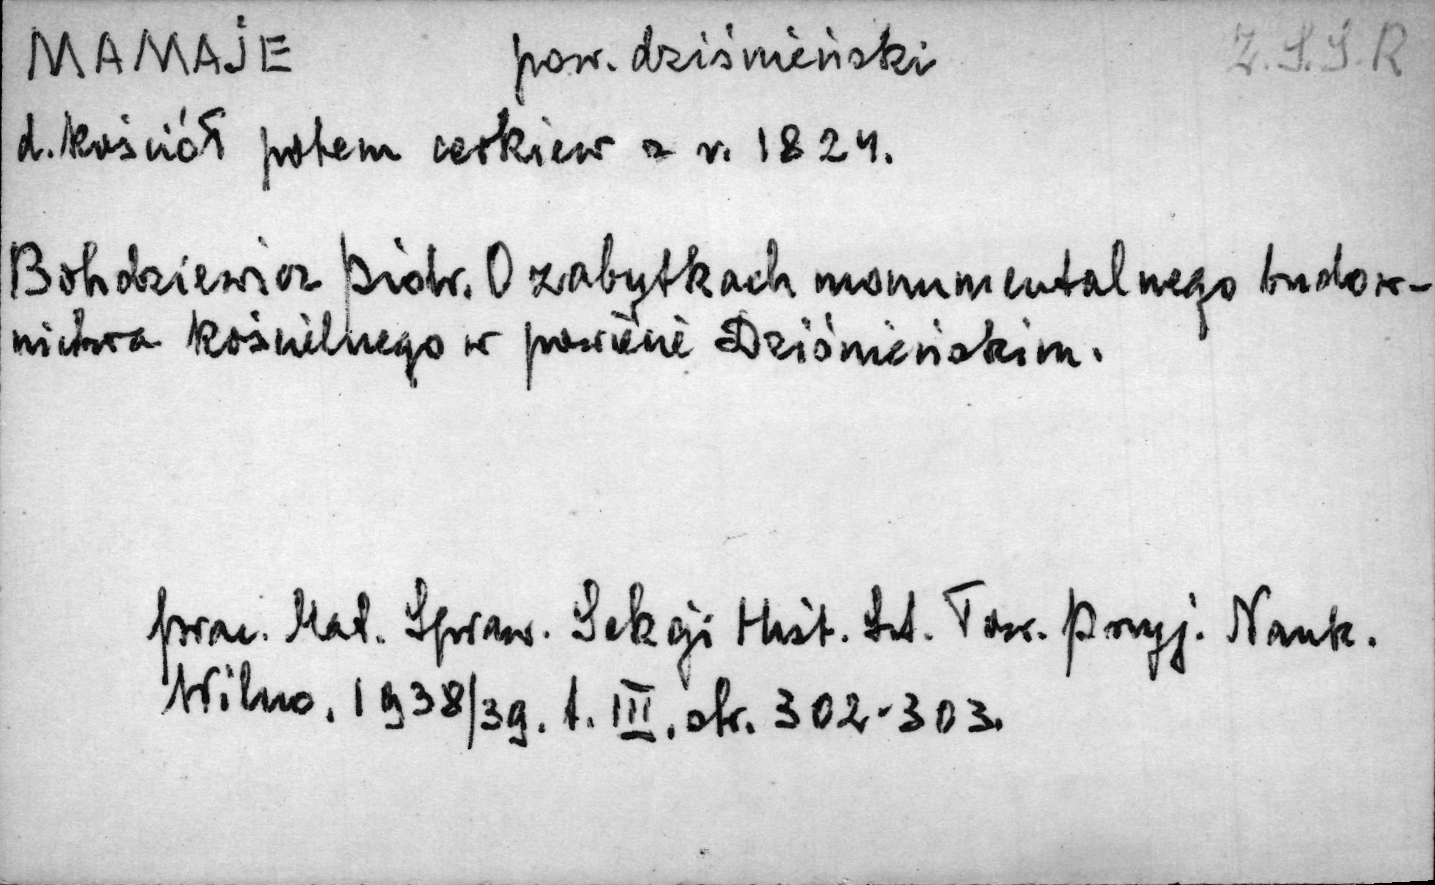 MAMAJE pow. dziśnieński Z.S.S.R
d. kościół potem cerkiew z r. 1824.
Bohdziewicz Piotr. O zabytkach monumentalnego budow-
nictwa kościelnego w powiecie Dziśnieńskim.
prac. Mat. Spraw. Sekcji Hist. Szt. Tow. Przyj. Nauk.
Wilno, 1938/39. t. III, str. 302-303.